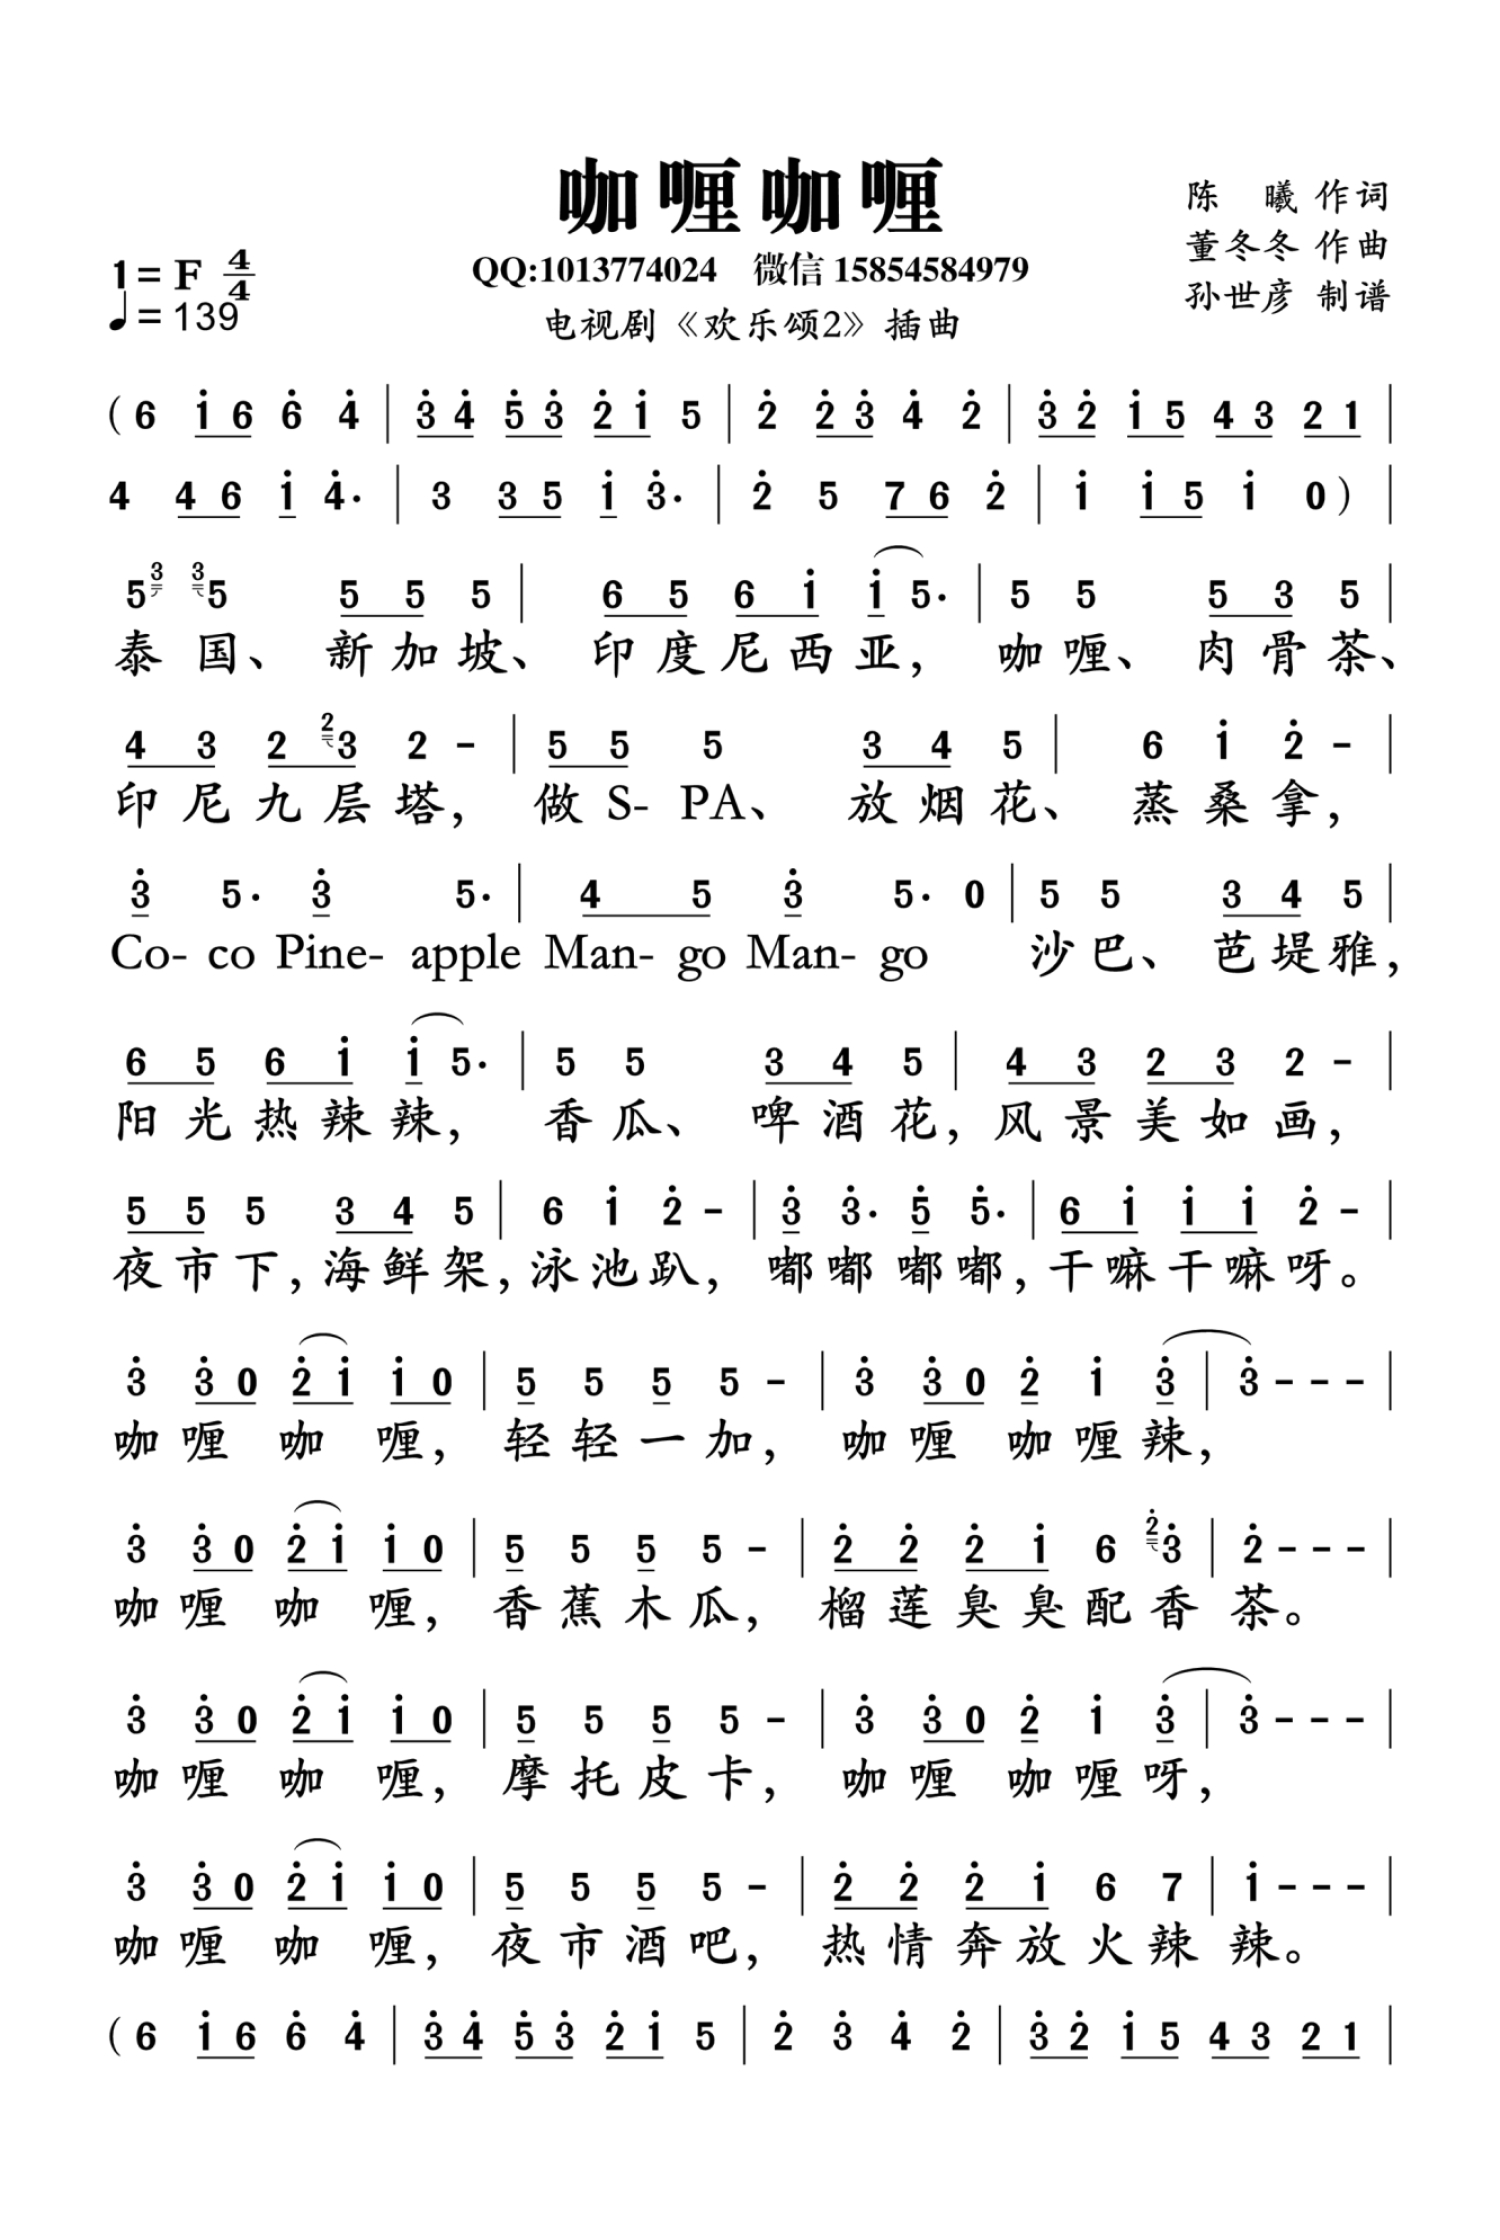 咖喱咖喱
陈 曦 作词
董冬冬 作曲
孙世彦 制谱
QQ:1013774024 微信 15854584979
电视剧《欢乐颂2》插曲
1= F 4/4
♩= 139
( 6 i̇ 6 6̇ 4̇ | 3̇ 4̇ 5̇ 3̇ 2̇ i̇ 5 | 2̇ 2̇ 3̇ 4̇ 2̇ | 3̇ 2̇ i̇ 5 4 3 2 1 |
4 4 6 i̇ 4̇. | 3 3 5 i̇ 3̇. | 2̇ 5 7 6 2̇ | i̇ i̇ 5 i̇ 0 ) |
5 3 3 5 5 5 5 | 6 5 6 i̇ i̇ 5. | 5 5 5 3 5 |
泰 国、 新 加 坡、 印 度 尼 西 亚, 咖 喱、 肉 骨 茶、
4 3 2 2 3 2 - | 5 5 5 3 4 5 | 6 i̇ 2̇ - |
印 尼 九 层 塔, 做 S- PA、 放 烟 花、 蒸 桑 拿,
3̇ 5. 3̇ 5. | 4 5 3̇ 5. 0 | 5 5 3 4 5 |
Co- co Pine- apple Man- go Man- go 沙 巴、 芭 堤 雅,
6 5 6 i̇ i̇ 5. | 5 5 3 4 5 | 4 3 2 3 2 - |
阳 光 热 辣 辣, 香 瓜、 啤 酒 花, 风 景 美 如 画,
5 5 5 3 4 5 | 6 i̇ 2̇ - | 3̇ 3̇. 5̇ 5̇. | 6 i̇ i̇ i̇ 2̇ - |
夜 市 下, 海 鲜 架, 泳 池 趴, 嘟 嘟 嘟 嘟, 干 嘛 干 嘛 呀。
3̇ 3̇ 0 2̇ i̇ i̇ 0 | 5 5 5 5 - | 3̇ 3̇ 0 2̇ i̇ 3̇ | 3̇ - - - |
咖 喱 咖 喱, 轻 轻 一 加, 咖 喱 咖 喱 辣,
3̇ 3̇ 0 2̇ i̇ i̇ 0 | 5 5 5 5 - | 2̇ 2̇ 2̇ i̇ 6 2̇ 3̇ | 2̇ - - - |
咖 喱 咖 喱, 香 蕉 木 瓜, 榴 莲 臭 臭 配 香 茶。
3̇ 3̇ 0 2̇ i̇ i̇ 0 | 5 5 5 5 - | 3̇ 3̇ 0 2̇ i̇ 3̇ | 3̇ - - - |
咖 喱 咖 喱, 摩 托 皮 卡, 咖 喱 咖 喱 呀,
3̇ 3̇ 0 2̇ i̇ i̇ 0 | 5 5 5 5 - | 2̇ 2̇ 2̇ i̇ 6 7 | i̇ - - - |
咖 喱 咖 喱, 夜 市 酒 吧, 热 情 奔 放 火 辣 辣。
( 6 i̇ 6 6̇ 4̇ | 3̇ 4̇ 5̇ 3̇ 2̇ i̇ 5 | 2̇ 3̇ 4̇ 2̇ | 3̇ 2̇ i̇ 5 4 3 2 1 |